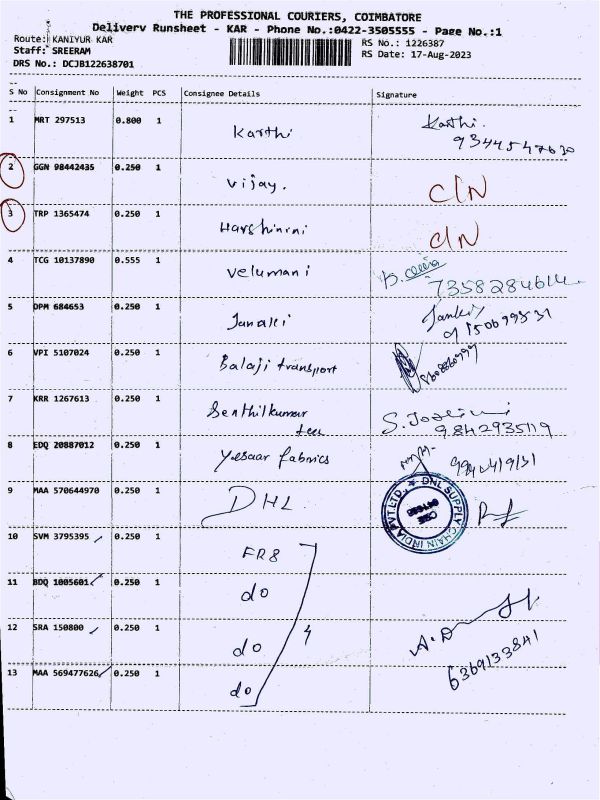 THE PROFESSIONAL COURIERS, COIMBATORE
Delivery Runsheet - KAR - Phone No.:0422-3505555 - Page No.:1
Route: KANIYUR KAR
RS No.: 1226387
Staff: SREERAM
RS Date: 17-Aug-2023
DRS No.: DCJB122638701
S No Consignment No Weight PCS Consignee Details Signature
1 MRT 297513 0.800 1 Karthi Karthi.
9344547630
2 GGN 98442435 0.250 1 Vijay. C/N
3 TRP 1365474 0.250 1 Harshinini C/N
4 TCG 10137890 0.555 1 Velumani
7358284614
5 OPM 684653 0.250 1 Janaki Janki
9150699531
6 VPI 5107024 0.250 1 Balaji transport
7 KRR 1267613 0.250 1 Senthilkumar
S. Joslini
9842935119
8 EDQ 20887012 0.250 1 Yesaar fabrics
9 MAA 570644970 0.250 1 DHL
DHL SUPPLY CHAIN INDIA PVT.LTD.,
10 SVM 3795395 0.250 1 FR8
11 BDQ 1005601 0.250 1 do
12 SRA 150800 0.250 1 do 4 A.D
6369133841
13 MAA 569477626 0.250 1 do